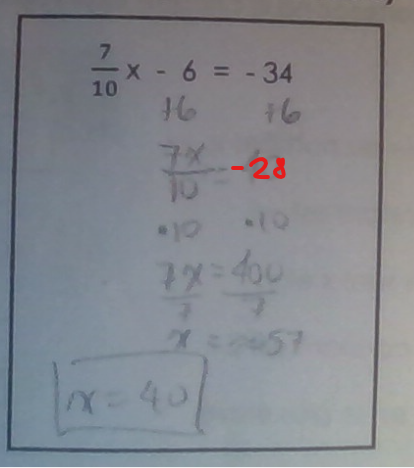 7/10 x - 6 = -34
+6 +6
7x/10 = -28
·10 ·10
7x/7 = 400/7
x = 057
x = 40